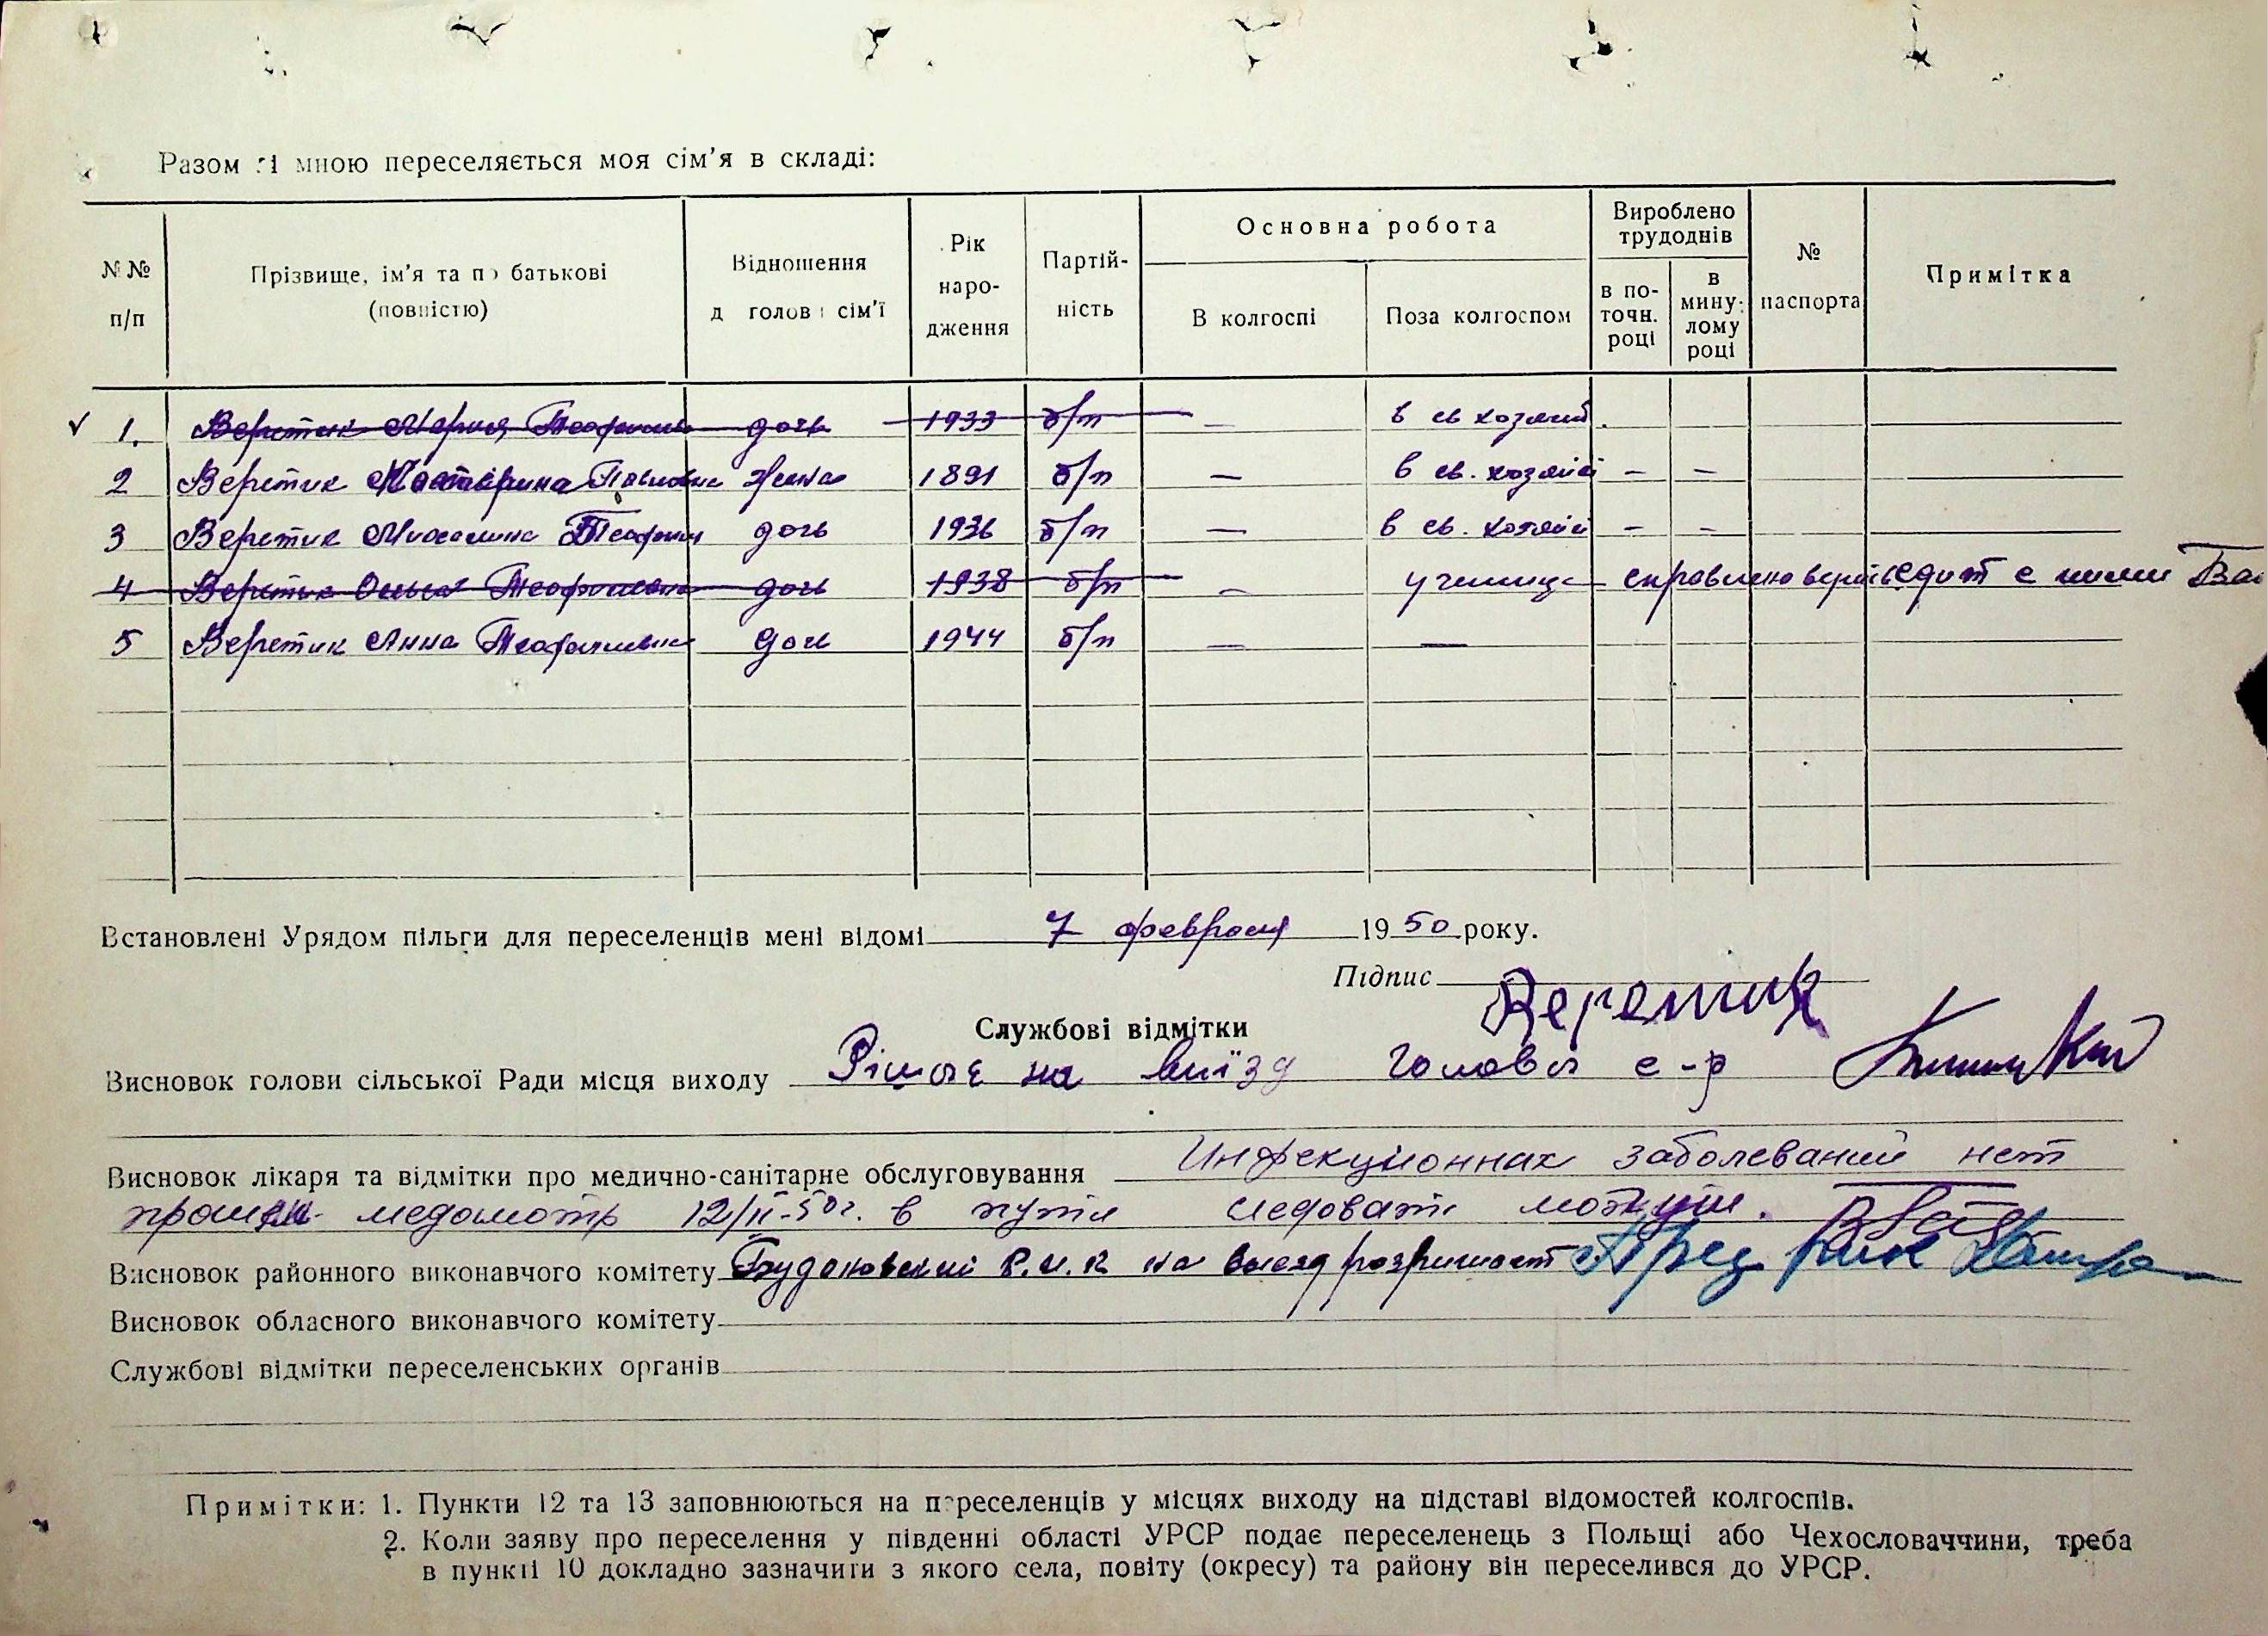 Разом зі мною переселяється моя сім'я в складі:
№№ п/п | Прізвище, ім'я та по батькові (повністю) | Відношення д голов сім'ї | Рік народження | Партійність | Основна робота | Вироблено трудоднів | № паспорта | Примітка
В колгоспі | Поза колгоспом | в поточн. році | в минулому році
1. Веретик Мария дочь 1933 б/п — в св хозяй.
2 Веретик Павловна жена 1891 б/п — в св. хозяйс — —
3 Веретик дочь 1936 б/п — в св. хозяйс — —
4 Веретик Ольга Теофиловна дочь 1938 б/п — учениця едит с ними
5 Веретик Анна Теофиловна дочь 1944 б/п — —
Встановлені Урядом пільги для переселенців мені відомі 7 февраля 1950 року.
Підпис Веретик
Службові відмітки
Висновок голови сільської Ради місця виходу на виїзд Голова с-р
Висновок лікаря та відмітки про медично-санітарне обслуговування Инфекционнах заболеваний нет
прошли медосмотр 12/II-50г. в пути следовать могут.
Висновок районного виконавчого комітету Р.И.К на выезд Пред рик
Висновок обласного виконавчого комітету
Службові відмітки переселенських органів
Примітки: 1. Пункти 12 та 13 заповнюються на переселенців у місцях виходу на підставі відомостей колгоспів.
2. Коли заяву про переселення у південні області УРСР подає переселенець з Польщі або Чехословаччини, треба
в пункті 10 докладно зазначити з якого села, повіту (окресу) та району він переселився до УРСР.